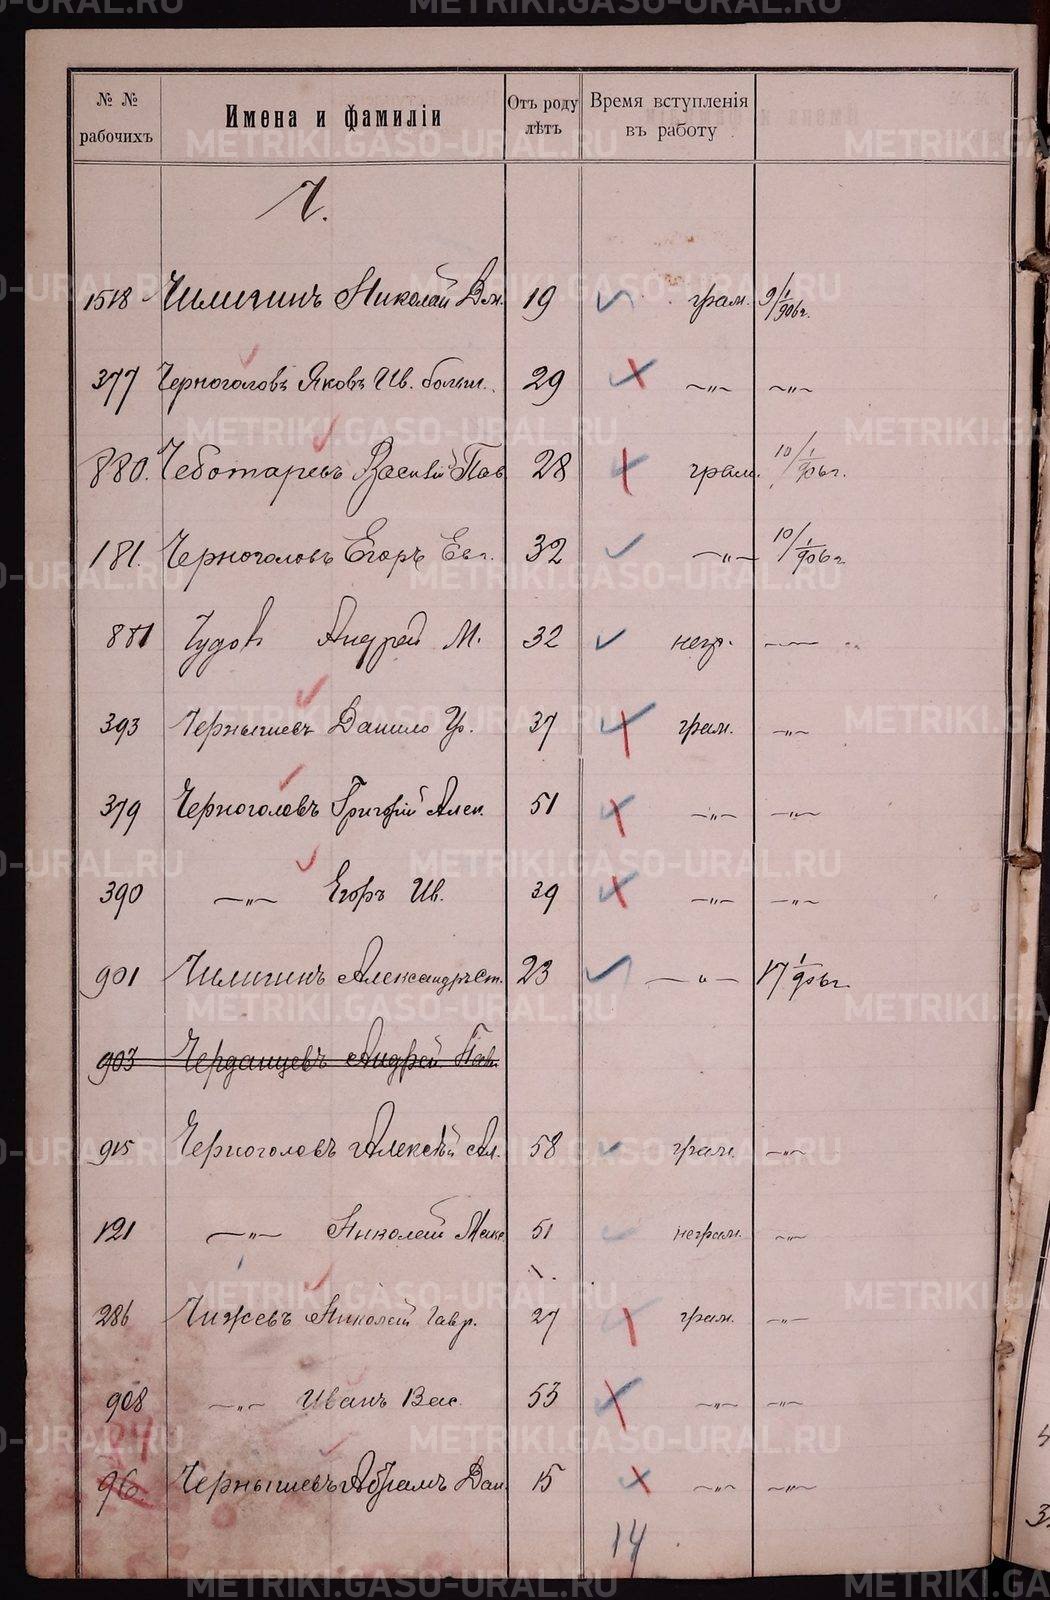 № № рабочихъ Имена и фамиліи Отъ роду лѣтъ Время вступленія въ работу
Ч.
1518 Чиличинъ Николай Дм. 19 грам. 9/1 906 г.
377 Черноголовъ Яковъ Ив. больш. 29 —"— —"—
880. Чеботаревъ Василій Пав 28 грам. 10/1 906 г.
181. Черноголовъ Егоръ Евг. 32 —"— 10/1 906 г.
881 Чудовъ Андрей М. 32 негр. —"—
393 Чернышевъ Данило Гр. 37 грам. —"—
379 Черноголовъ Григорій Алек. 51 —"— —"—
390 —"— Егоръ Ив. 39 —"— —"—
901 Чиличинъ Александръ Ст. 23 —"— 17 1/906 г.
903 Черданцевъ Андрей Пав.
915 Черноголовъ Алексѣй Ал. 58 грам. —"—
121 —"— Николай Макс 51 неграм. —"—
286 Чижевъ Николай Гавр. 27 грам. —"—
908 —"— Иванъ Вас. 53 —"— —"—
96. Чернышевъ Абрамъ Дан. 15 —"— —"—
14
METRIKI.GASO-URAL.RU